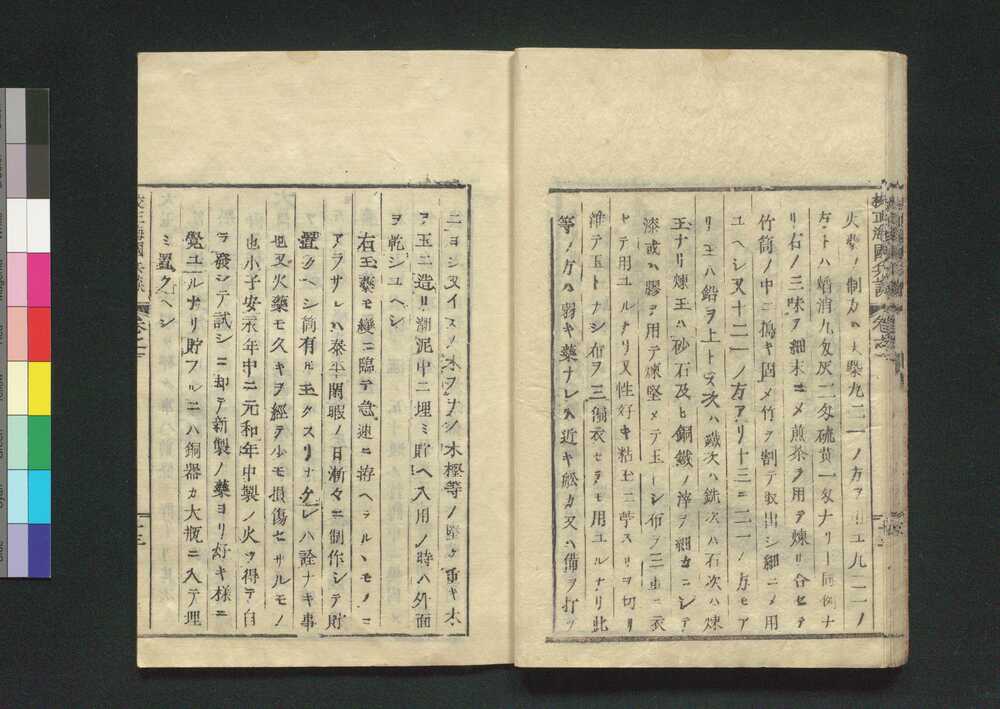 火藥ノ制方ハ火藥九二一ノ方ヲ用ユ九二一ノ
方トハ焔消九匁灰二匁硫黄一匁ナリ一同例ナ
リ右ノ三味ヲ細末ニメ煎茶ヲ用テ煉リ合セテ
竹筒ノ中ニ搗キ固メ竹ヲ割テ取出シ細ニメ用
ユヘシ又十二一ノ方アリ十三ニ二一ノ方モア
リ玉ハ鉛ヲ上トス次ハ鐵次ハ銑次ハ石次ハ煉
玉ナリ煉玉ハ砂石及ヒ銅鐵ノ滓ヲ細カニシテ
漆或ハ膠ヲ用テ煉堅メテ玉ニシ布ヲ三重ニ衣
セテ用ユルナリ又性好キ粘土ニ苧スリヲ切リ
雜テ玉トナシ布ヲ三徧衣セテモ用ユルナリ此
等ノケハ弱キ藥ナレハ近キ舩カ又ハ備ヲ打ツ
ニヨシ又イスノ木ヲナシノ木樫等ノ堅ク重キ木
ヲ玉ニ造リ潮泥中ニ埋ミ貯ヘ入用ノ時ハ外面
ヲ乾シユヘシ
右玉藥モ變ニ臨テ急速ニ拵ヘラルヽモノニ
アラサレハ泰平閑暇ノ日漸々ニ制作シテ貯
置クヘシ筒有ルモ玉クスリナケレハ詮ナキ事
也又火藥モ久キヲ經テ少モ損傷セサルモノ
也小子安永年中ニ元和年中製ノ火ヲ得テ自
ラ發シテ試シニ却テ新製ノ藥ヨリ好キ樣ニ
覺ユルナリ貯フルニハ銅器カ大瓶ニ入テ埋
ミ置クヘシ
校正海國兵談
卷之
十三